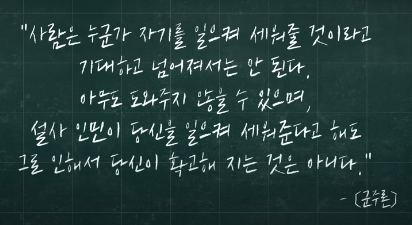 "사람은 누군가 자기를 일으켜 세워줄 것이라고
기대하고 넘어져서는 안 된다.
아무도 도와주지 않을 수 있으며,
설사 인민이 당신을 일으켜 세워준다고 해도
그로 인해서 당신이 확고해 지는 것은 아니다."
- [군주론]